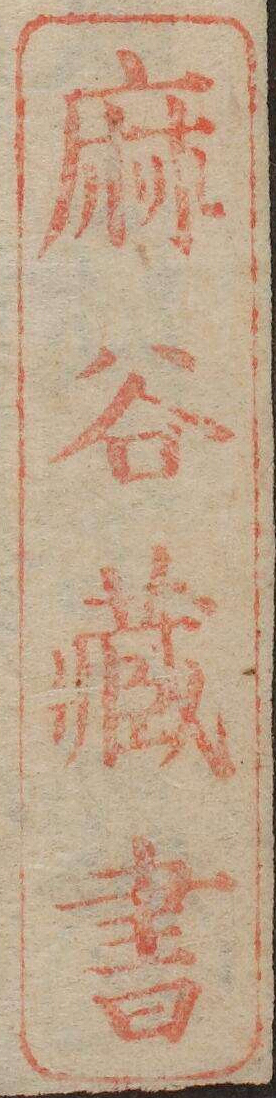 麻谷藏書